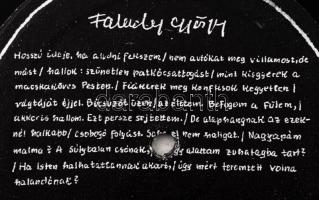 Faludy György
Hosszú ideje, ha aludni fekszem / nem autókat meg villamost, de
mást / hallok: szünetlen patkócsattogást / mint kisgyerek a
macskaköves Pesten. / Fiákerek meg konflisok kegyetlen /
vágtáját éjjel. Búcsúzót ütem / az életem. Befogom a fülem, /
akkor is hallom. Ezt persze sejtettem. / De alaphangnak az ezek-
nél halkabb / csobogó folyást. Soha el nem hallgat. / Nagyapám
malma? A súlytalan csónak, / alattam zuhatagba tart?
/ Ha Isten halhatatlannak akart, / úgy mért teremtett volna
halandónak?